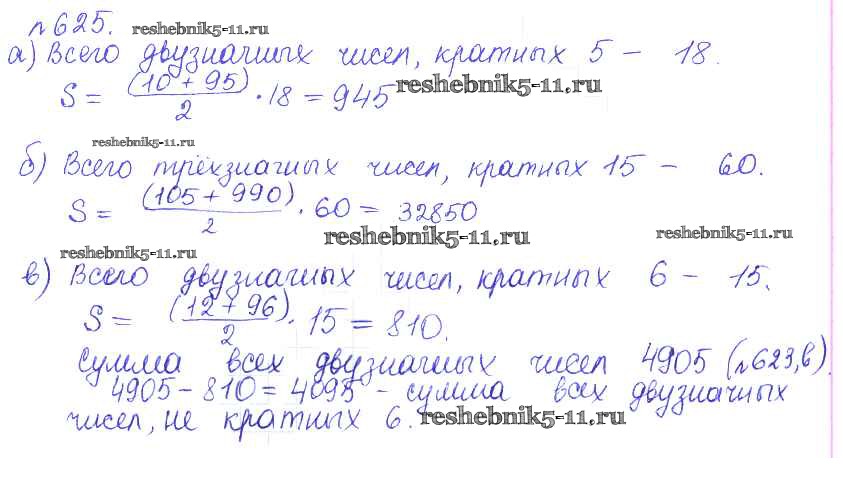 №625. reshebnik5-11.ru
а) Всего двузначных чисел, кратных 5 - 18.
S = (10 + 95)/2 · 18 = 945 reshebnik5-11.ru
reshebnik5-11.ru
б) Всего трёхзначных чисел, кратных 15 - 60.
S = (105 + 990)/2 · 60 = 32850
reshebnik5-11.ru reshebnik5-11.ru
reshebnik5-11.ru
в) Всего двузначных чисел, кратных 6 - 15.
S = (12 + 96)/2 · 15 = 810.
Сумма всех двузначных чисел 4905 (№623,в).
4905 - 810 = 4095 - сумма всех двузначных
чисел, не кратных 6. reshebnik5-11.ru